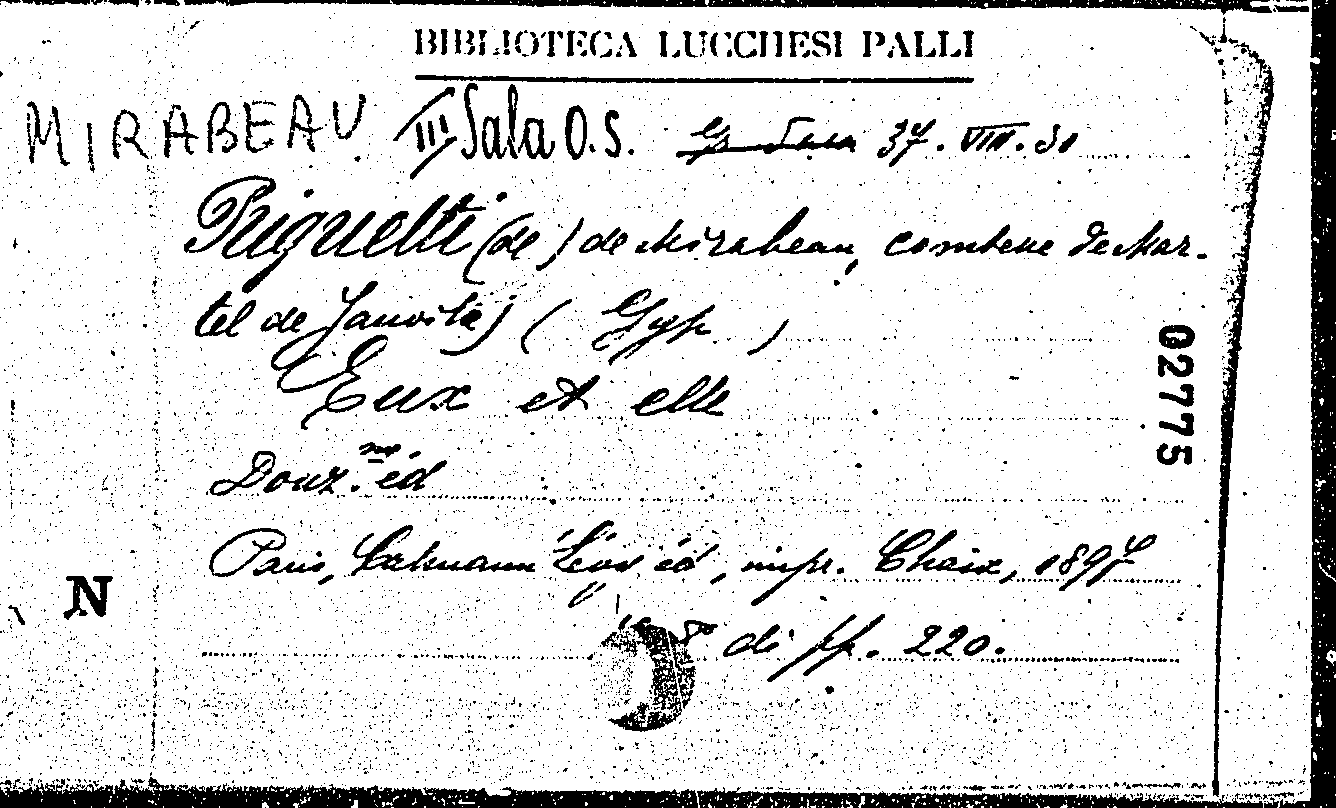 BIBLIOTECA LUCCHESI PALLI
MIRABEAU III Sala O.S. 37. VIII. 30
Riquetti (de) de Mirabeau, comtesse de Mar-
tel de Janville) (Gyp)
Eux et elle
Douz.me éd
Paris, Calmann Lévy éd, impr. Chaix, 1897
8° di pp. 220.
02775
N